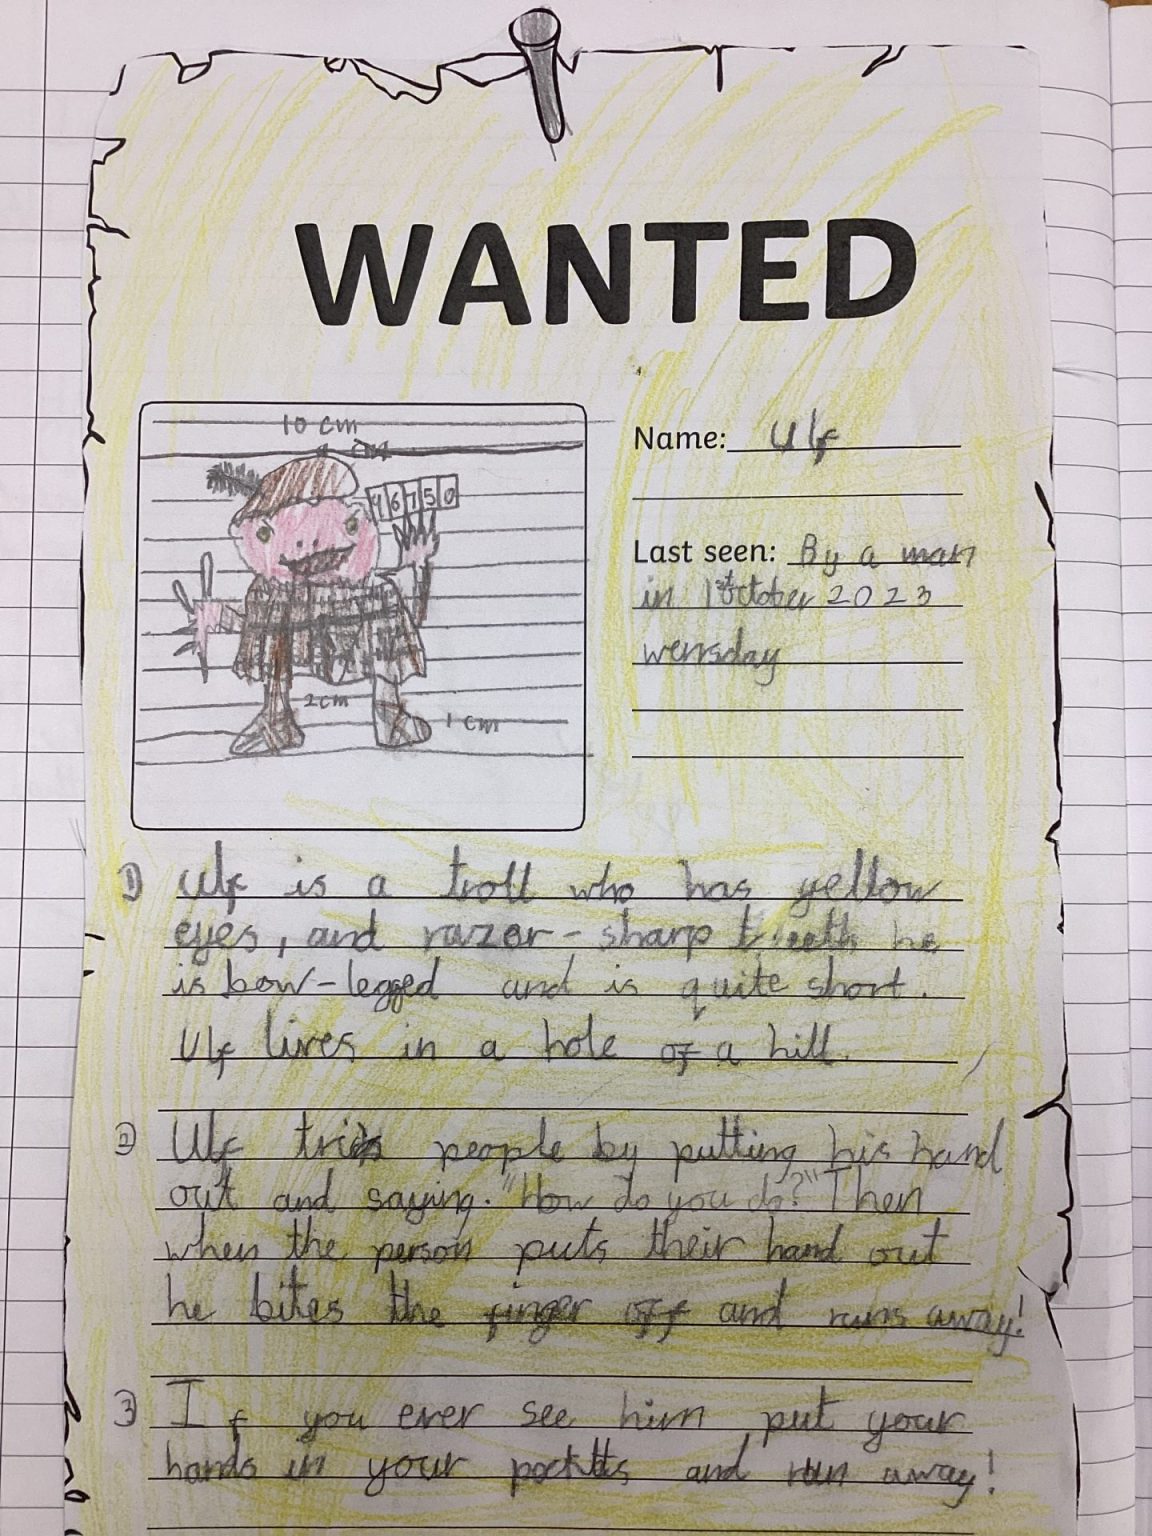 WANTED
10 cm
cm
46750
2cm
1 cm
Name: Ulf
Last seen: By a man
in 1st October 2023
wensday
1) Ulf is a troll who has yellow
eyes, and razor-sharp teeth he
is bow-legged and is quite short.
Ulf lives in a hole of a hill.
2) Ulf tricks people by putting his hand
out and saying. "How do you do?" Then
when the person puts their hand out
he bites the finger off and runs away!
3) If you ever see him put your
hands in your pockets and run away!